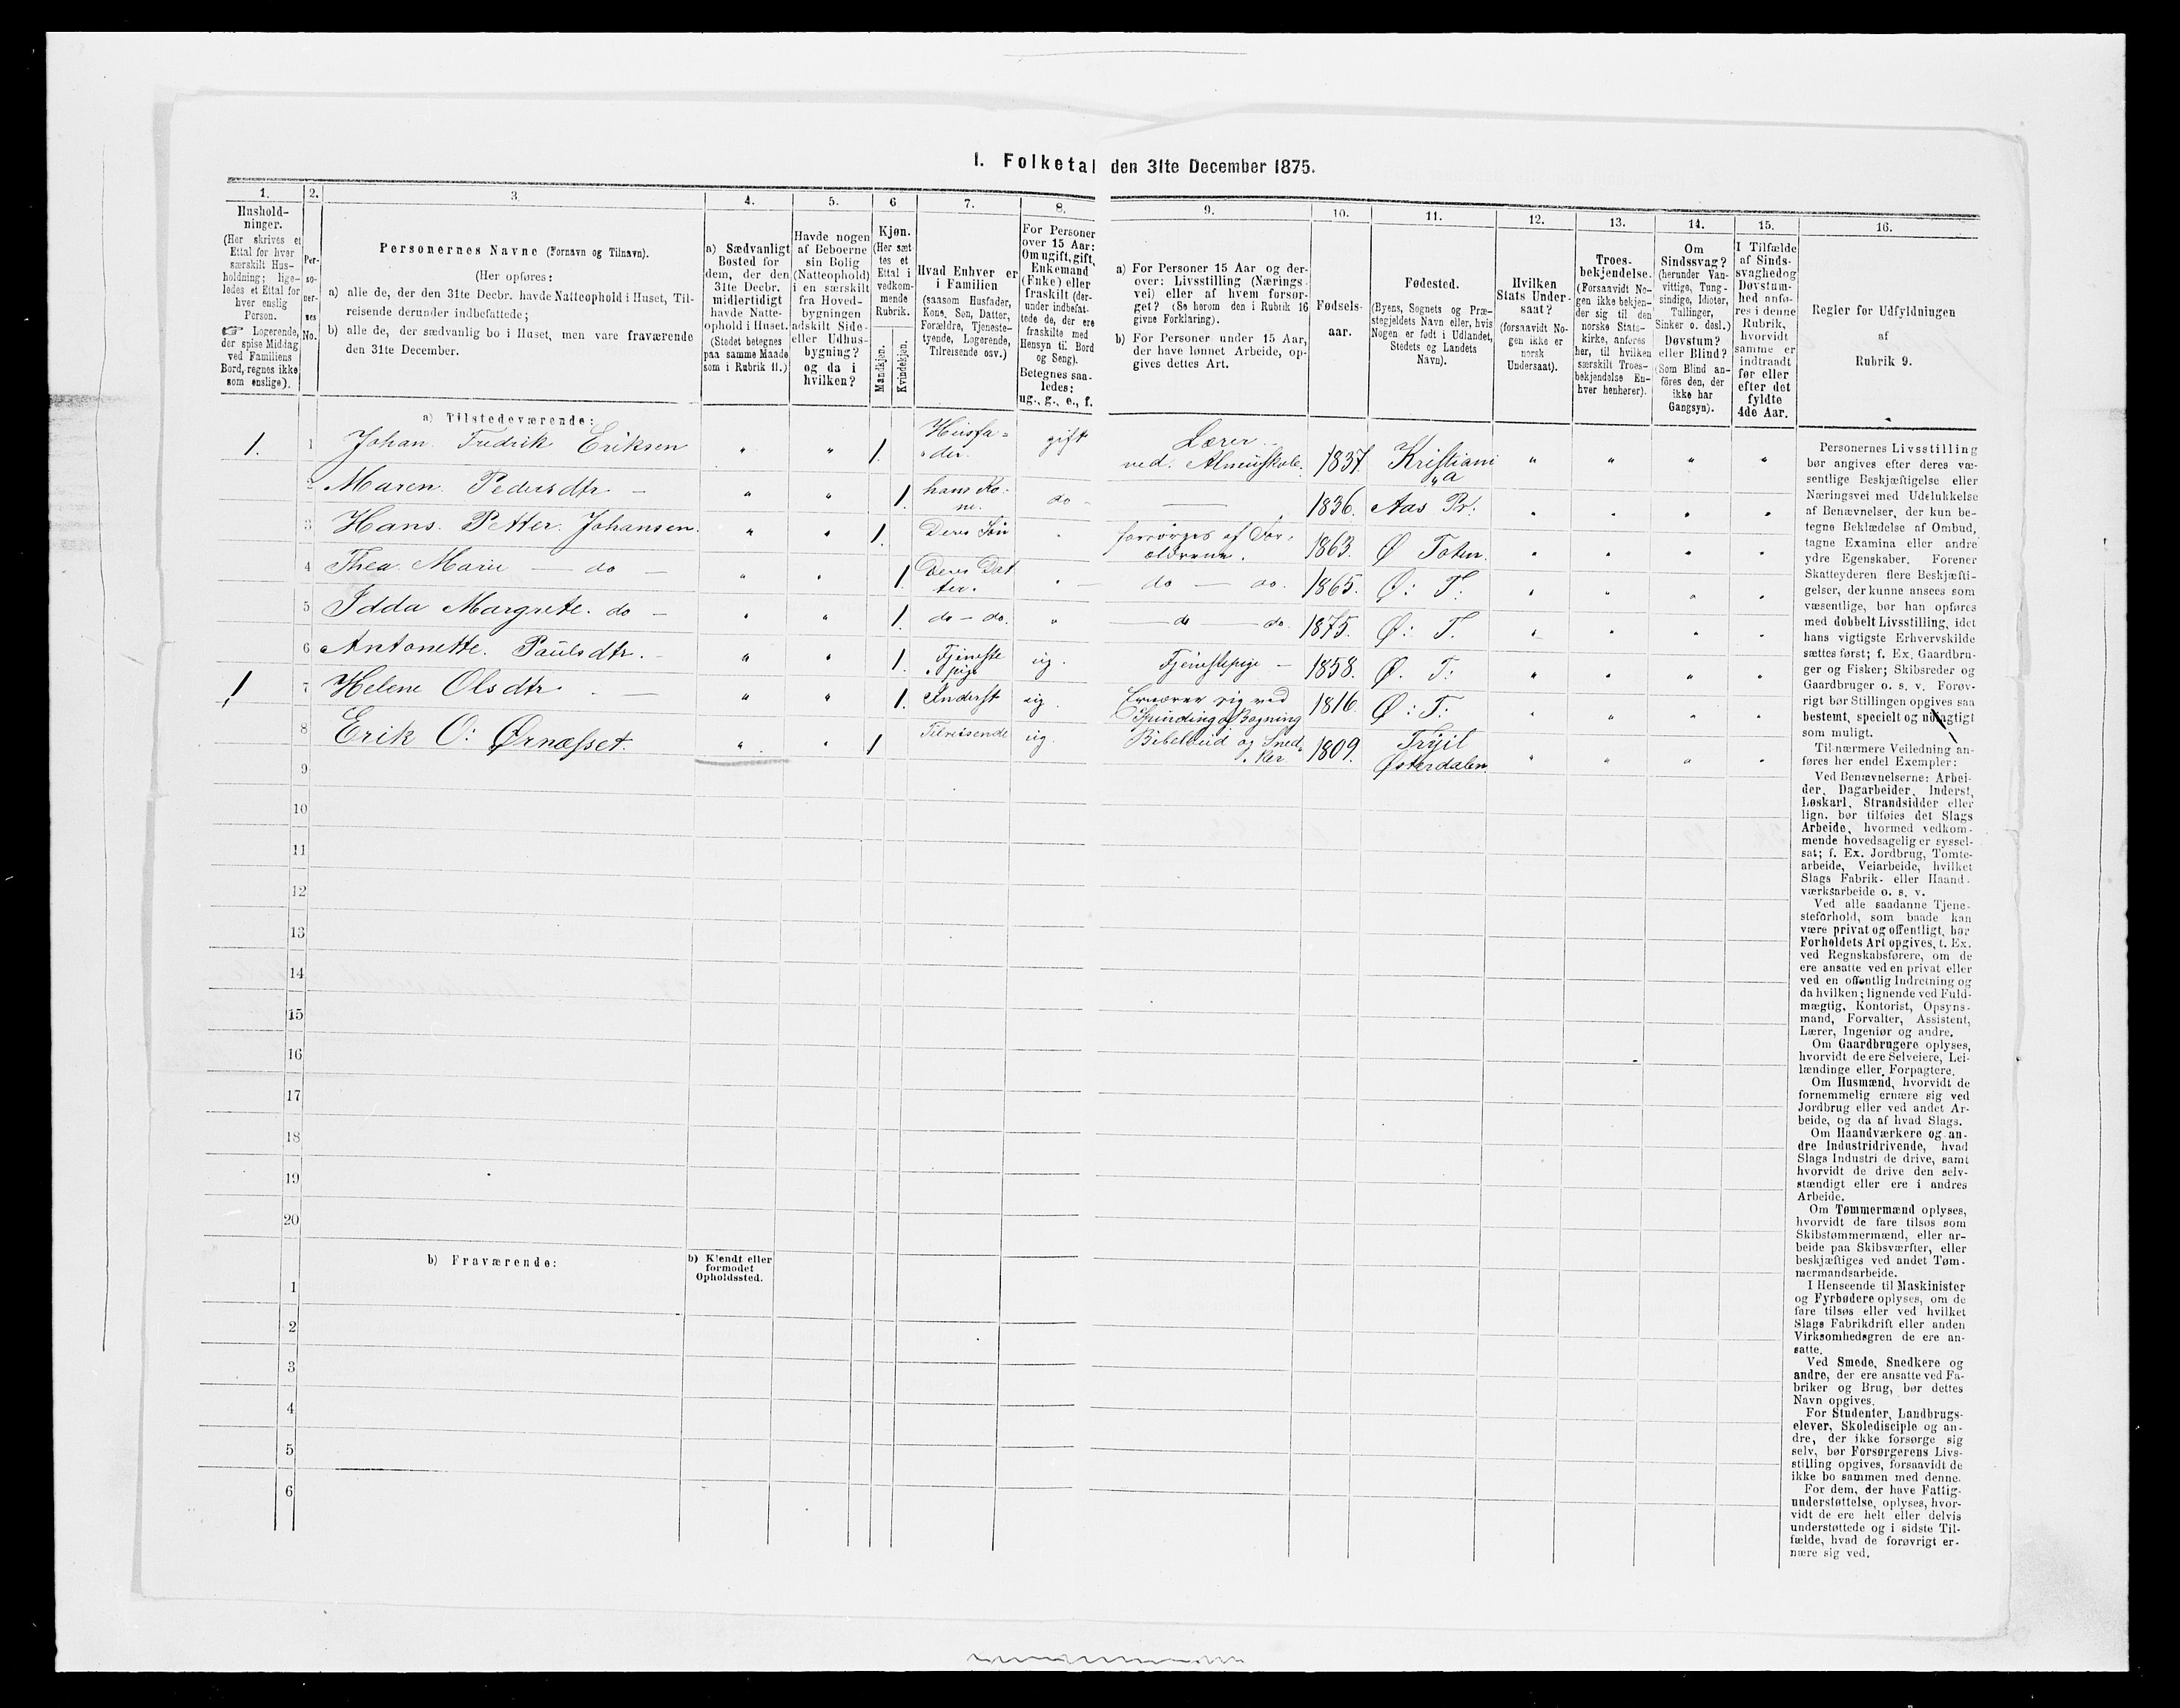 I. Folketal den 31te December 1875.
1.
Hushold-
ninger.
(Her skrives et
Ettal for hver
særskilt Hus-
holdning; lige-
ledes et Ettal for
hver enslig
Person.
☞ Logerende,
der spise Middag
ved Familiens
Bord, regnes ikke
som enslige).
2.
Per-
so-
ner-
nes
No.
3.
Personernes Navne (Fornavn og Tilnavn).
(Her opføres:
a) alle de, der den 31te Decbr. havde Natteophold i Huset, Til-
reisende derunder indbefattede;
b) alle de, der sædvanlig bo i Huset, men vare fraværende
den 31te December.
4.
a) Sædvanligt
Bosted for
dem, der den
31te Decbr.
midlertidigt
havde Natte-
ophold i Huset.
(Stedet betegnes
paa samme Maade
som i Rubrik 11.)
5.
Havde nogen
af Beboerne
sin Bolig
(Natteophold)
i en særskilt
fra Hoved-
bygningen
adskilt Side-
eller Udhus-
bygning?
og da i
hvilken?
6
Kjøn.
(Her sæt-
tes et
Ettal i
vedkom-
mende
Rubrik.
Mandkjøn.
Kvindekjøn.
7.
Hvad Enhver er
i Familien
(saasom Husfader,
Kone, Søn, Datter,
Forældre, Tjeneste-
tyende, Logerende,
Tilreisende osv.)
8.
For Personer
over 15 Aar:
Om ugift, gift,
Enkemand
(Enke) eller
fraskilt (der-
under indbefat-
tede de, der ere
fraskilte med
Hensyn til Bord
og Seng).
Betegnes saa-
ledes:
ug., g., e., f.
9.
a) For Personer 15 Aar og der-
over: Livsstilling (Nærings-
vei) eller af hvem forsør-
get? (Se herom den i Rubrik 16
givne Forklaring).
b) For Personer under 15 Aar,
der have lønnet Arbeide, op-
gives dettes Art.
10.
Fødsels-
aar.
11.
Fødested.
(Byens, Sognets og Præ-
stegjeldets Navn eller, hvis
Nogen er født i Udlandet,
Stedets og Landets
Navn).
12.
Hvilken
Stats Under-
saat?
(forsaavidt No-
gen ikke er
norsk
Undersaat).
13.
Troes-
bekjendelse.
(Forsaavidt No-
gen ikke bekjen-
der sig til den
norske Stats-
kirke, anføres
her, til hvilken
særskilt Troes-
bekjendelse En-
hver henhører).
14.
Om
Sindssvag?
(herunder Van-
vittige, Tung-
sindige, Idioter,
Tullinger,
Sinker o. desl.)
Døvstum?
eller Blind?
(Som Blind an-
føres den, der
ikke har
Gangsyn).
15.
I Tilfælde
af Sinds-
svaghed og
Døvstum-
hed anfø-
res i denne
Rubrik,
hvorvidt
samme er
indtraadt
før eller
efter det
fyldte
4de Aar.
16.
Regler for Udfyldningen
af
Rubrik 9.
a) Tilstedeværende:
1. 1 Johan Fredrik Eriksen " " 1. Husfa- gift Lærer 1837. Kristiani " " " "
der. ved Almuskole. "a
2 Maren Pedersdtr — " " 1. hans Ko- do — 1836. Aas Pr. " " " "
ne.
3 Hans Petter Johansen. " " 1. Deres Søn " forsørges af For- 1863 Ø Toten. " " " "
ældrene.
4 Thea Marie — do — " " 1 Deres Dat " do — do. 1865. Ø: T: " " " "
ter.
5 Idda Margrete. do — " " 1. do - do. " — do — do. 1875. Ø: T. " " " "
6 Antonette Paulsdtr. — " " 1. Tjeneste ug. Tjenestepige — 1858. Ø. T: " " " "
pige
1 7 Helene Olsdtr. — " " 1. Inderst ug. Ernærer sig ved 1816. Ø: T: " " " "
Spinding og Bagning
8 Erik O: Ørnæsset. " " 1 Tilreisende ug. Bibelbud og Sned- 1809. Trysil " " " "
ker Østerdalen.
9
10
11
12
13
14
15
16
17
18
19
20
b) Fraværende:
b) Kjendt eller
formodet
Opholdssted.
1
2
3
4
5
6
Personernes Livsstilling
bør angives efter deres væ-
sentlige Beskjæftigelse eller
Næringsvei med Udelukkelse
af Benævnelser, der kun be-
tegne Beklædelse af Ombud,
tagne Examina eller andre
ydre Egenskaber. Forener
Skatteyderen flere Beskjæfti-
gelser, der kunne ansees som
væsentlige, bør han opføres
med dobbelt Livsstilling, idet
hans vigtigste Erhvervskilde
sættes først; f. Ex. Gaardbru-
ger og Fisker; Skibsreder og
Gaardbruger o. s. v. Forøv-
rigt bør Stillingen opgives saa
bestemt, specielt og nøiagtigt
som muligt.
Til nærmere Veiledning an-
føres her endel Exempler:
Ved Benævnelserne: Arbei-
der, Dagarbeider, Inderst,
Løskarl, Strandsidder eller
lign. bør tilføies det Slags
Arbeide, hvormed vedkom-
mende hovedsagelig er syssel-
sat; f. Ex. Jordbrug, Tomte-
arbeide, Veiarbeide, hvilket
Slags Fabrik- eller Haand-
værksarbeide o. s. v.
Ved alle saadanne Tjene-
steforhold, som baade kan
være privat og offentligt, bør
Forholdets Art opgives, t. Ex.
ved Regnskabsførere, om de
ere ansatte ved en privat eller
ved en offentlig Indretning og
da hvilken; lignende ved Fuld-
mægtig, Kontorist, Opsyns-
mand, Forvalter, Assistent,
Lærer, Ingeniør og andre.
Om Gaardbrugere oplyses,
hvorvidt de ere Selveiere, Lei-
lændinge eller Forpagtere.
Om Husmænd, hvorvidt de
fornemmelig ernære sig ved
Jordbrug eller ved andet Ar-
beide, og da af hvad Slags.
Om Haandværkere og an-
dre Industridrivende, hvad
Slags Industri de drive, samt
hvorvidt de drive den selv-
stændigt eller ere i andres
Arbeide.
Om Tømmermænd oplyses,
hvorvidt de fare tilsøs som
Skibstømmermænd, eller ar-
beide paa Skibsværfter, eller
beskjæftiges ved andet Tøm-
mermandsarbeide.
I Henseende til Maskinister
og Fyrbødere oplyses, om de
fare tilsøs eller ved hvilket
Slags Fabrikdrift eller anden
Virksomhedsgren de ere an-
satte.
Ved Smede, Snedkere og
andre, der ere ansatte ved Fa-
briker og Brug, bør dettes
Navn opgives.
For Studenter, Landbrugs-
elever, Skoledisciple og an-
dre, der ikke forsørge sig
selv, bør Forsørgerens Livs-
stilling opgives, forsaavidt de
ikke bo sammen med denne.
For dem, der have Fattig-
understøttelse, oplyses, hvor-
vidt de ere helt eller delvis
understøttede og i sidste Til-
fælde, hvad de forøvrigt er-
nære sig ved.